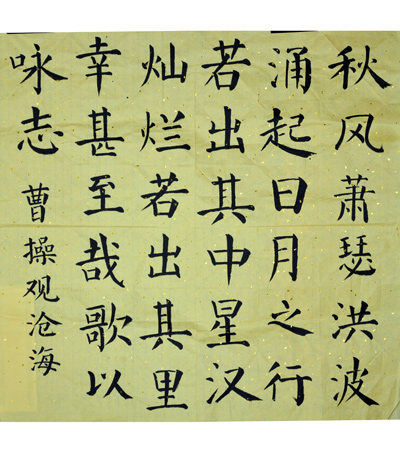 秋风萧瑟洪波
涌起日月之行
若出其中星汉
灿烂若出其里
幸甚至哉歌以
咏志
曹操观沧海